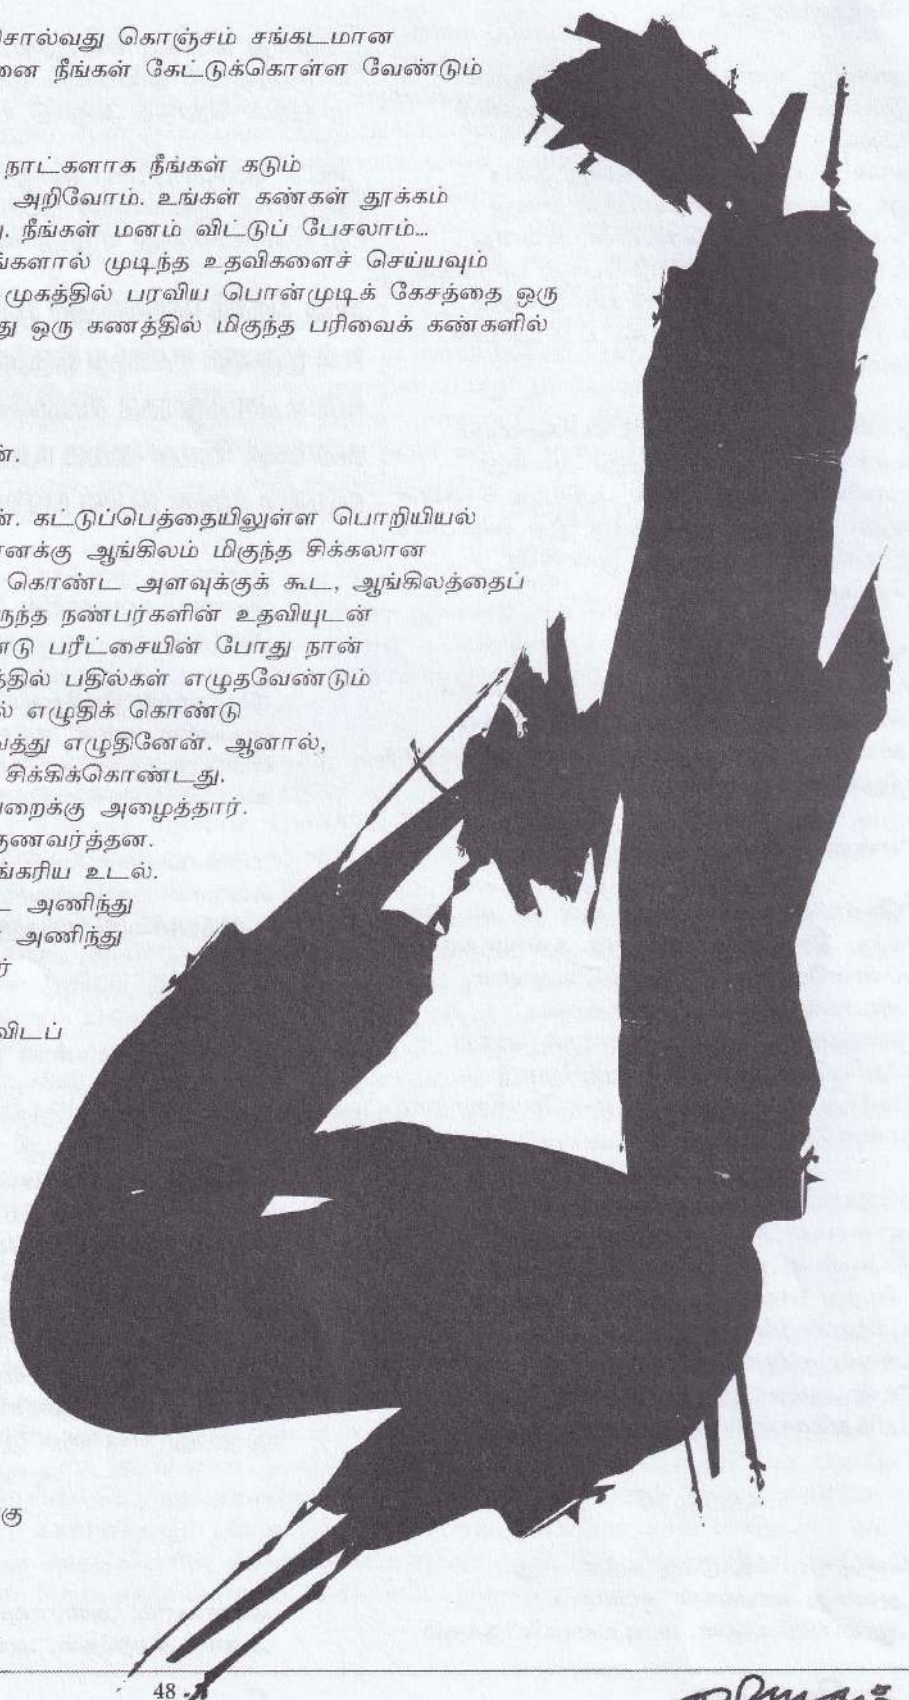 சொல்வது கொஞ்சம் சங்கடமான
னை நீங்கள் கேட்டுக்கொள்ள வேண்டும்
நாட்களாக நீங்கள் கடும்
அறிவோம். உங்கள் கண்கள் தூக்கம்
து. நீங்கள் மனம் விட்டுப் பேசலாம்...
ங்களால் முடிந்த உதவிகளைச் செய்யவும்
முகத்தில் பரவிய பொன்முடிக் கேசத்தை ஒரு
து ஒரு கணத்தில் மிகுந்த பரிவைக் கண்களில்
ன்.
ன். கட்டுப்பெத்தையிலுள்ள பொறியியல்
எனக்கு ஆங்கிலம் மிகுந்த சிக்கலான
கொண்ட அளவுக்குக் கூட, ஆங்கிலத்தைப்
ருந்த நண்பர்களின் உதவியுடன்
ண்டு பரீட்சையின் போது நான்
த்தில் பதில்கள் எழுதவேண்டும்
ல் எழுதிக் கொண்டு
வத்து எழுதினேன். ஆனால்,
சிக்கிக்கொண்டது.
றைக்கு அழைத்தார்.
குணவர்த்தன.
ங்கரிய உடல்.
ட அணிந்து
அணிந்து
ர்
விடப்
கு
48